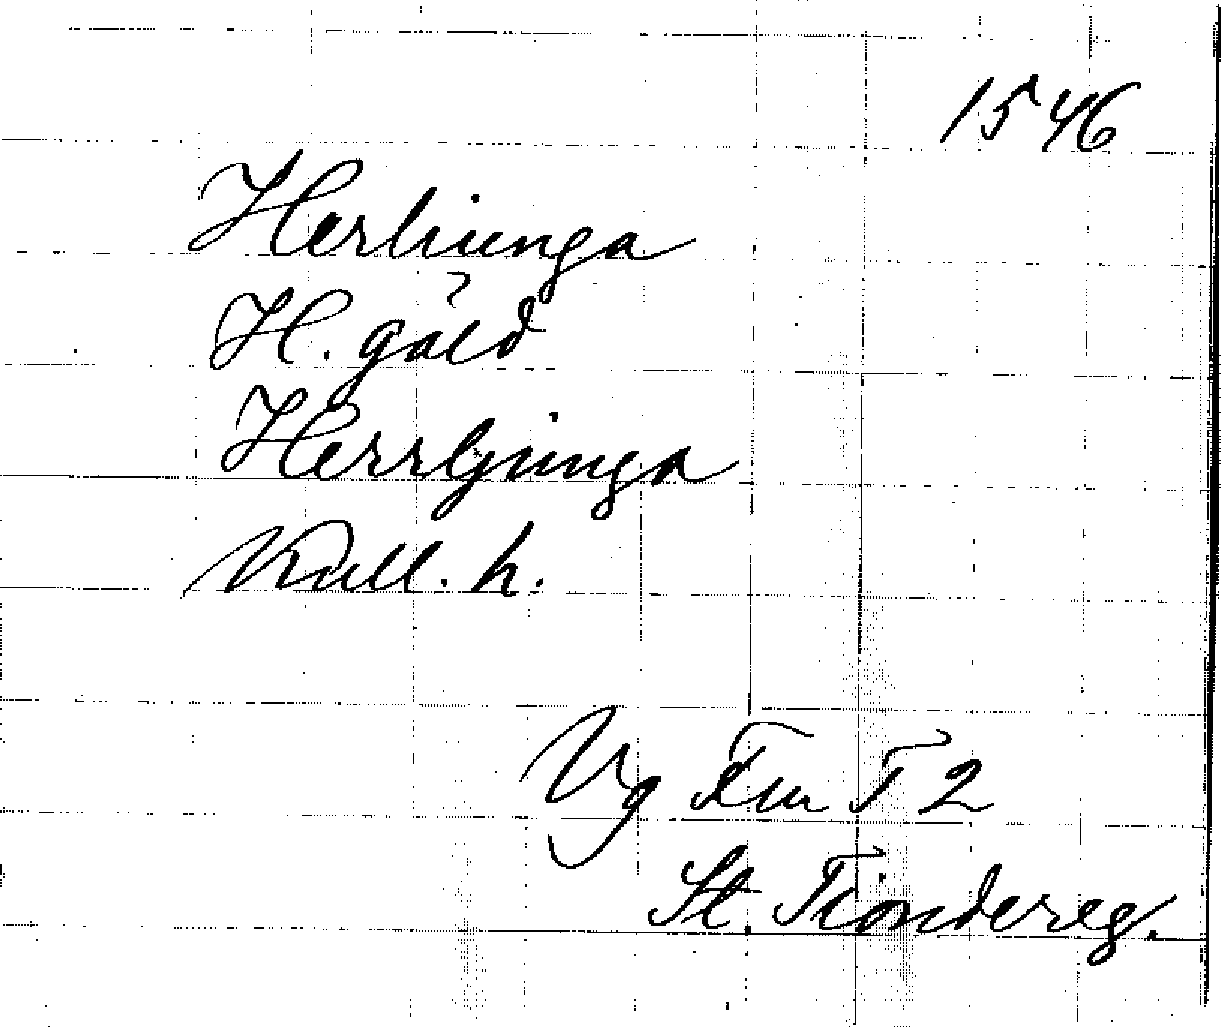 1546
Herliunga
H. gäld
Herrljunga
Kull. h.
Vg Fm T 2
St. Tiondereg.